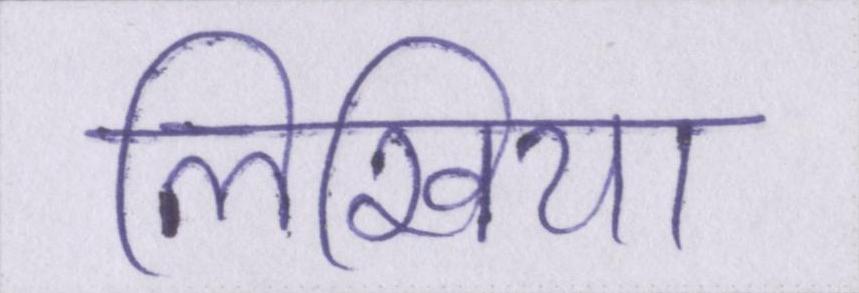 लिखिया